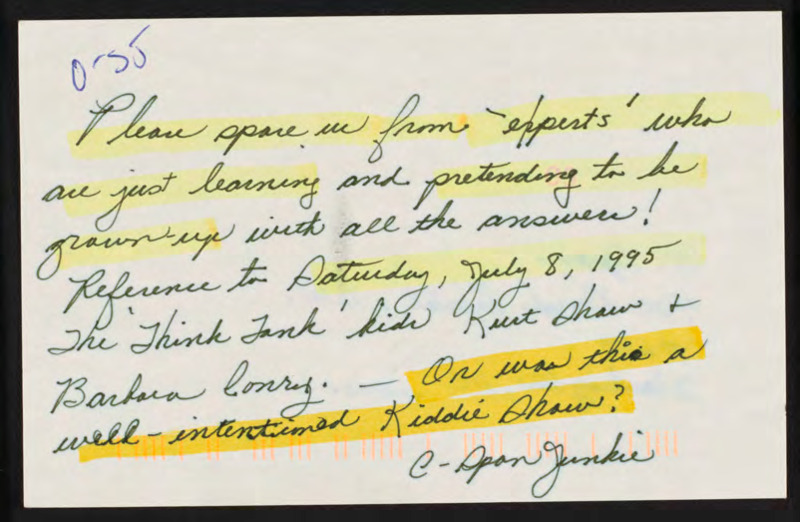 0-35
Please spare us from 'experts' who
are just learning and pretending to be
grown-up with all the answers!
Reference to Saturday, July 8, 1995
The 'Think Tank' kids Kurt Shaw &
Barbara Conry. — Or was this a
well-intentioned Kiddie Show?
C-Span Junkie